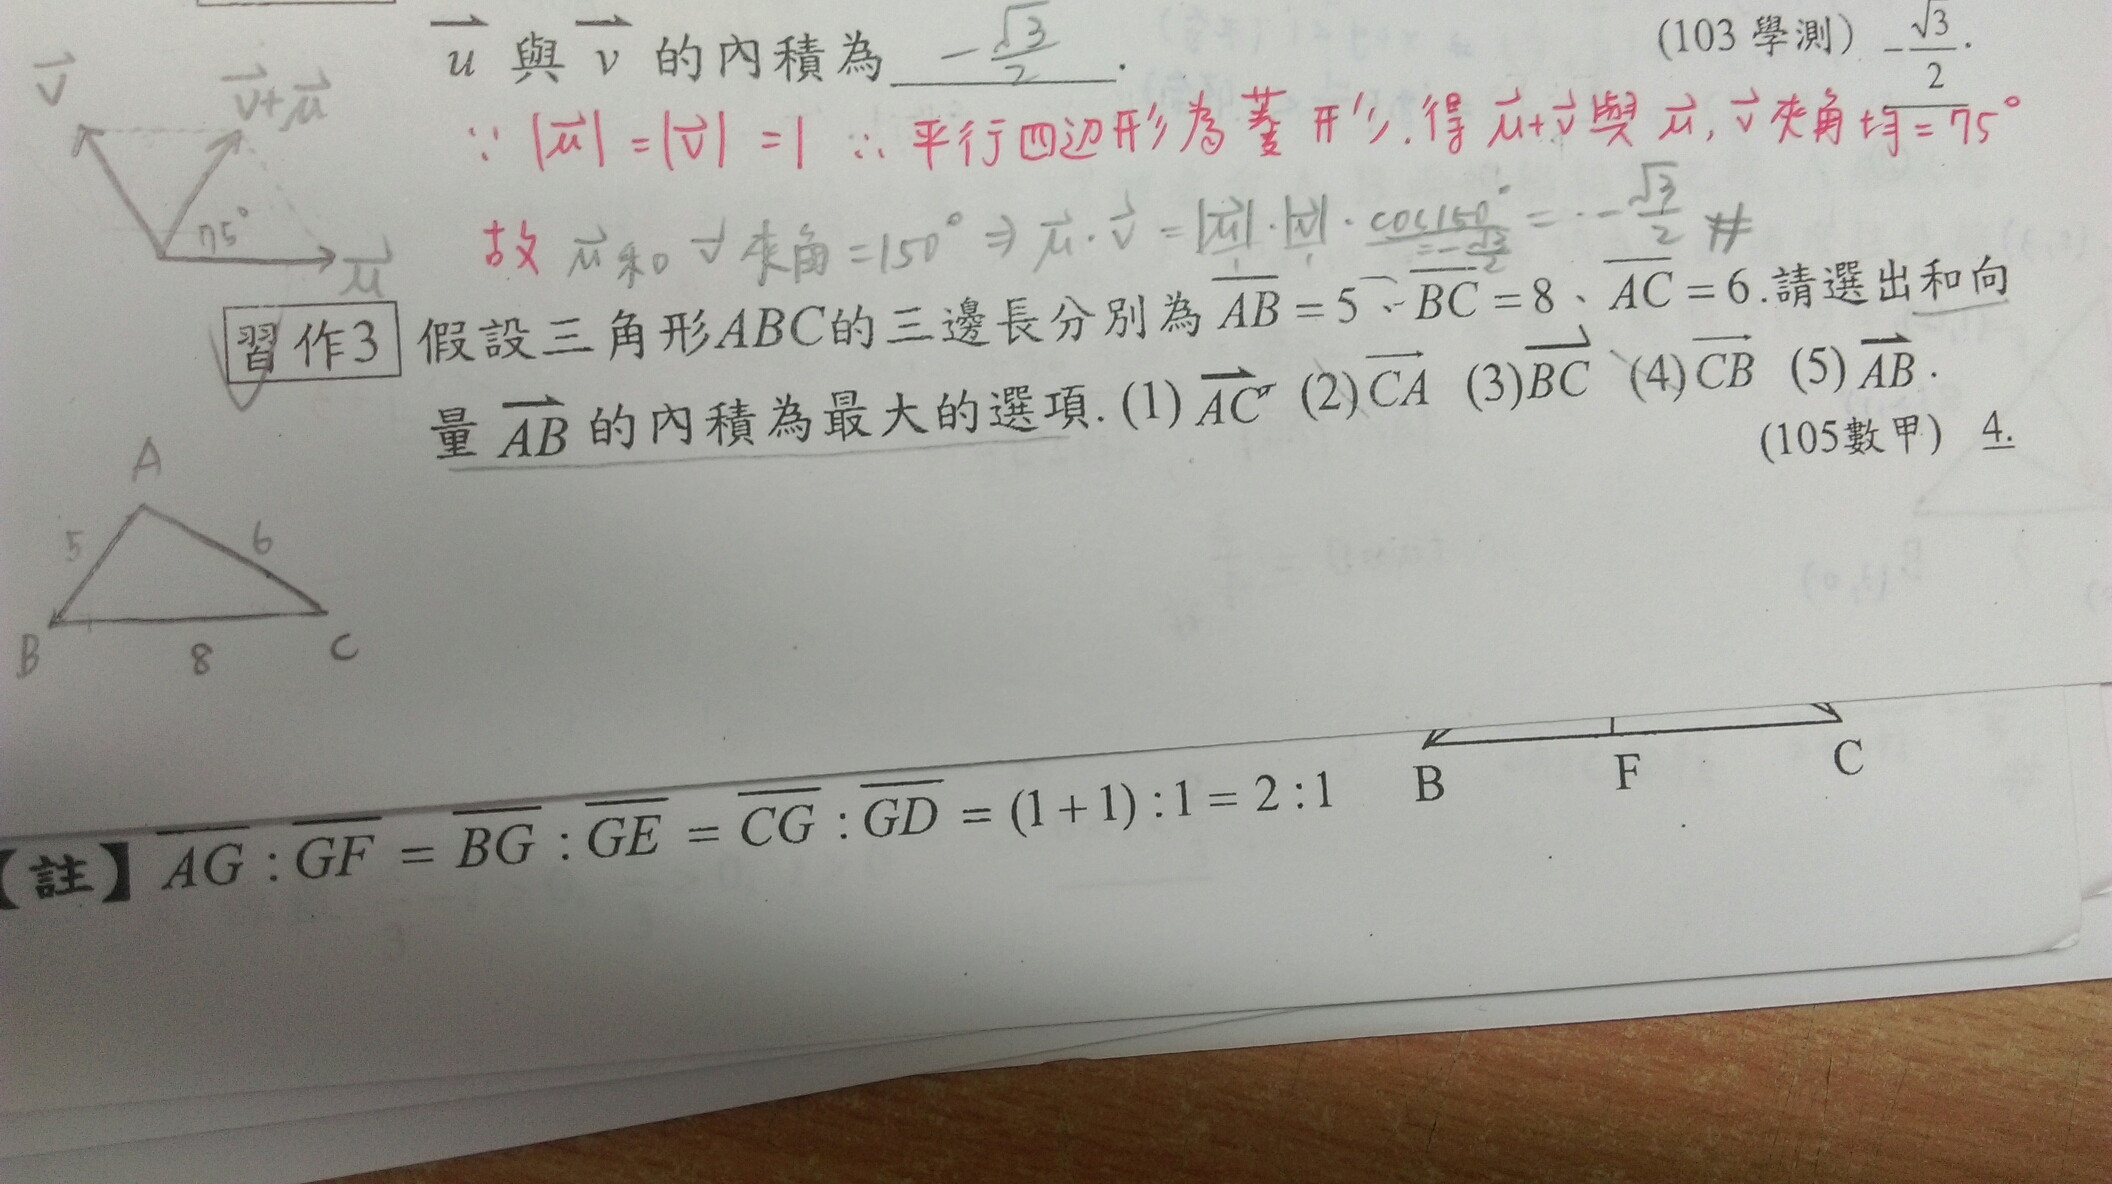 u 與 v 的內積為 -√3/2 .
(103 學測) -√3/2.
v
v+u
75°
u
∵ |u| = |v| = 1 ∴ 平行四边形為菱形. 得 u+v 與 u, v 夾角均=75°
故 u 和 v 夾角=150° ⇒ u·v = |u|·|v|·cos150° = -√3/2 #
1 1 =-√3/2
習作3 假設三角形ABC的三邊長分別為 AB = 5、BC = 8、AC = 6.請選出和向
量 AB 的內積為最大的選項. (1) AC (2) CA (3) BC (4) CB (5) AB.
(105數甲) 4.
A
5 6
B 8 C
B F C
【註】AG : GF = BG : GE = CG : GD = (1+1) : 1 = 2 : 1